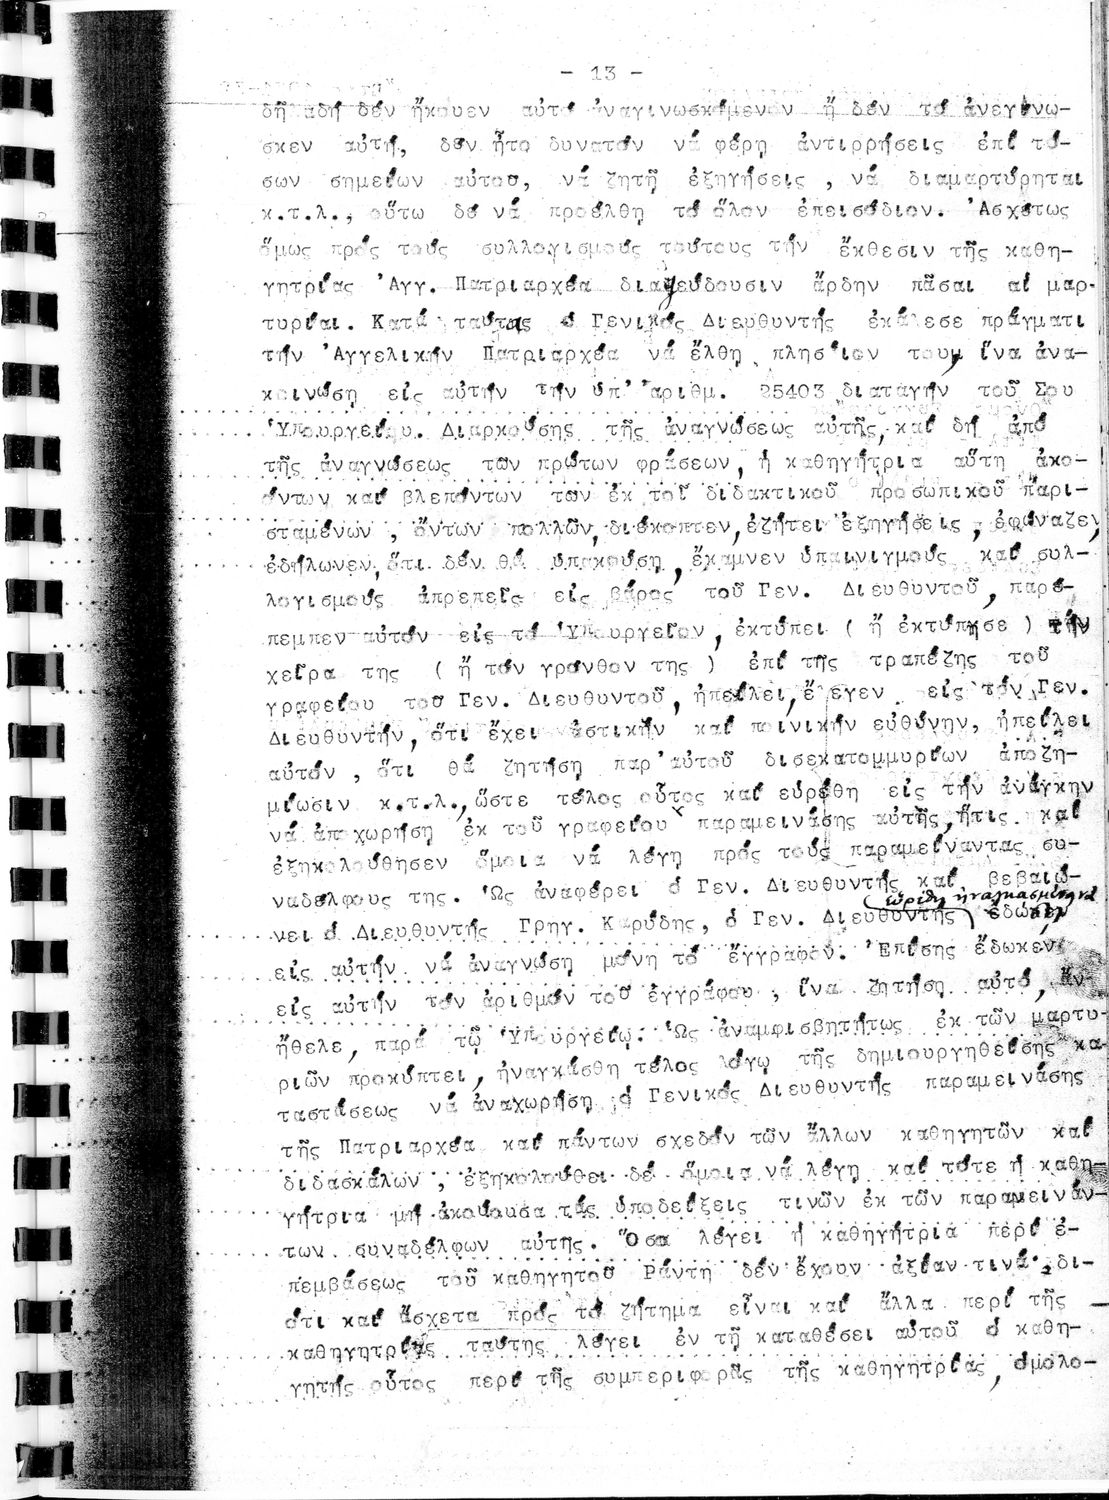 - 13 -
δή αδή δέν ἤκουεν αὐτό ἀναγινωσκόμενον ἤ δέν τό ἀνεγίνω-
σκεν αὐτή, δέν ἦτο δυνατόν νά φέρῃ ἀντιρρήσεις ἐπί τό-
σων σημείων αὐτοῦ, νά ζητῇ ἐξηγήσεις , νά διαμαρτύρηται
κ.τ.λ., οὕτω δέ νά προέλθῃ τό ὅλον ἐπεισόδιον. Ἀσχέτως
ὅμως πρός τούς συλλογισμούς τούτους τήν ἔκθεσιν τῆς καθη-
γητρίας Ἀγγ. Πατριαρχέα διαψεύδουσιν ἄρδην πᾶσαι αἱ μαρ-
τυρίαι. Κατά ταύτας ὁ Γενικός Διευθυντής ἐκάλεσε πράγματι
τήν Ἀγγελικήν Πατριαρχέα νά ἔλθῃ πλησίον του, ἵνα ἀνα-
κοινώσῃ εἰς αὐτήν τήν ὑπ' ἀριθμ. 25403 διαταγήν τοῦ Σου
Ὑπουργείου. Διαρκούσης τῆς ἀναγνώσεως αὐτῆς, καί δή ἀπό
τῆς ἀναγνώσεως τῶν πρώτων φράσεων, ἡ καθηγήτρια αὕτη ἀκο-
όντων καί βλεπόντων τῶν ἐκ τοῦ διδακτικοῦ προσωπικοῦ παρι-
σταμένων , ὄντων πολλῶν, διέκοπτεν, ἐζήτει ἐξηγήσεις , ἐφώναζεν,
ἐδήλωνεν, ὅτι δέν θά ὑπακούσῃ, ἔκαμνεν ὑπαινιγμούς καί συλ-
λογισμούς ἀπρεπεῖς εἰς βάρος τοῦ Γεν. Διευθυντοῦ, παρέ-
πεμπεν αὐτόν εἰς τό Ὑπουργεῖον, ἐκτύπει ( ἤ ἐκτύπησε ) τήν
χεῖρα της ( ἤ τόν γρόνθον της ) ἐπί τῆς τραπέζης τοῦ
γραφείου τοῦ Γεν. Διευθυντοῦ, ἠπείλει, ἔλεγεν εἰς τόν Γεν.
Διευθυντήν, ὅτι ἔχει ἀστικήν καί ποινικήν εὐθύνην, ἠπείλει
αὐτόν , ὅτι θά ζητήσῃ παρ' αὐτοῦ δισεκατομμυρίων ἀποζη-
μίωσιν κ.τ.λ., ὥστε τέλος οὗτος καί εὑρέθη εἰς τήν ἀνάγκην
νά ἀποχωρήσῃ ἐκ τοῦ γραφείου παραμεινάσης αὐτῆς, ἥτις καί
ἐξηκολούθησεν ὅμοια νά λέγῃ πρός τούς παραμείναντας συ-
ναδέλφους της. Ὡς ἀναφέρει ὁ Γεν. Διευθυντής καί βεβαιώ-
εὑρέθη ἠναγκασμένος νά
νει ὁ Διευθυντής Γρηγ. Καρύδης, ὁ Γεν. Διευθυντής δώσῃ
εἰς αὐτήν νά ἀναγνώσῃ μόνη τό ἔγγραφον. Ἐπίσης ἔδωκεν
εἰς αὐτήν τόν ἀριθμόν τοῦ ἐγγράφου , ἵνα ζητήσῃ αὐτό, ἄν
ἤθελε, παρά τῷ Ὑπουργείῳ. Ὡς ἀναμφισβητήτως ἐκ τῶν μαρτυ-
ριῶν προκύπτει, ἠναγκάσθη τέλος λόγῳ τῆς δημιουργηθείσης κα-
ταστάσεως νά ἀναχωρήσῃ ὁ Γενικός Διευθυντής παραμεινάσης
τῆς Πατριαρχέα καί πάντων σχεδόν τῶν ἄλλων καθηγητῶν καί
διδασκάλων , ἐξηκολούθει δέ ὅμοια νά λέγῃ καί τότε ἡ καθη-
γήτρια μή ἀκούουσα τάς ὑποδείξεις τινῶν ἐκ τῶν παραμεινάν-
των συναδέλφων αὐτῆς. Ὅσα λέγει ἡ καθηγήτρια περί ἐ-
πεμβάσεως τοῦ καθηγητοῦ Ράντη δέν ἔχουν ἀξίαν τινά, δι-
ότι καί ἄσχετα πρός τό ζήτημα εἶναι καί ἄλλα περί τῆς
καθηγητρίας ταύτης λέγει ἐν τῇ καταθέσει αὐτοῦ ὁ καθη-
γητής οὗτος περί τῆς συμπεριφορᾶς τῆς καθηγητρίας, ὁμολο-